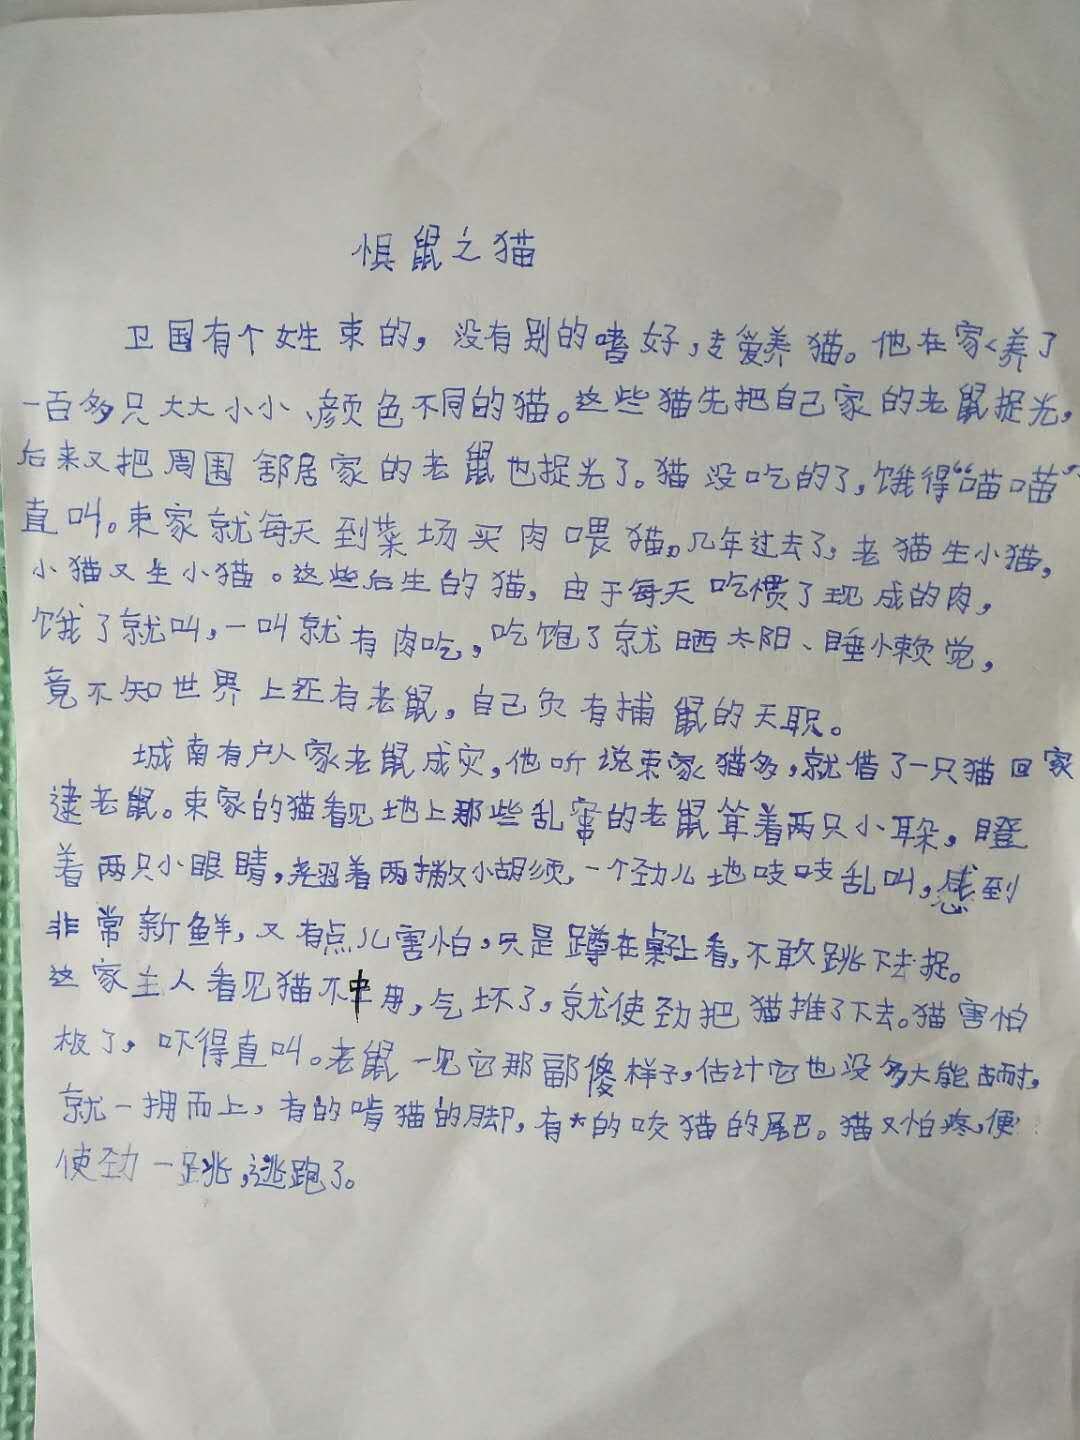 惧鼠之猫
卫国有个姓束的，没有别的嗜好，专爱养猫。他在家养了
一百多只大大小小、颜色不同的猫。这些猫先把自己家的老鼠捉光，
后来又把周围邻居家的老鼠也捉光了。猫没吃的了，饿得“喵喵”
直叫。束家就每天到菜场买肉喂猫。几年过去了，老猫生小猫，
小猫又生小猫。这些后生的猫，由于每天吃惯了现成的肉，
饿了就叫，一叫就有肉吃，吃饱了就晒太阳、睡懒觉，
竟不知世界上还有老鼠，自己负有捕鼠的天职。
城南有户人家老鼠成灾，他听说束家猫多，就借了一只猫回家
逮老鼠。束家的猫看见地上那些乱窜的老鼠耸着两只小耳朵，瞪
着两只小眼睛，翘着两撇小胡须，一个劲儿地吱吱乱叫，感到
非常新鲜，又有点儿害怕，只是蹲在桌上看，不敢跳下去捉。
这家主人看见猫不中用，气坏了，就使劲把猫推了下去。猫害怕
极了，吓得直叫。老鼠一见它那副傻样子，估计它也没多大能耐，
就一拥而上，有的啃猫的脚，有的咬猫的尾巴。猫又怕疼，便
使劲一跳，逃跑了。